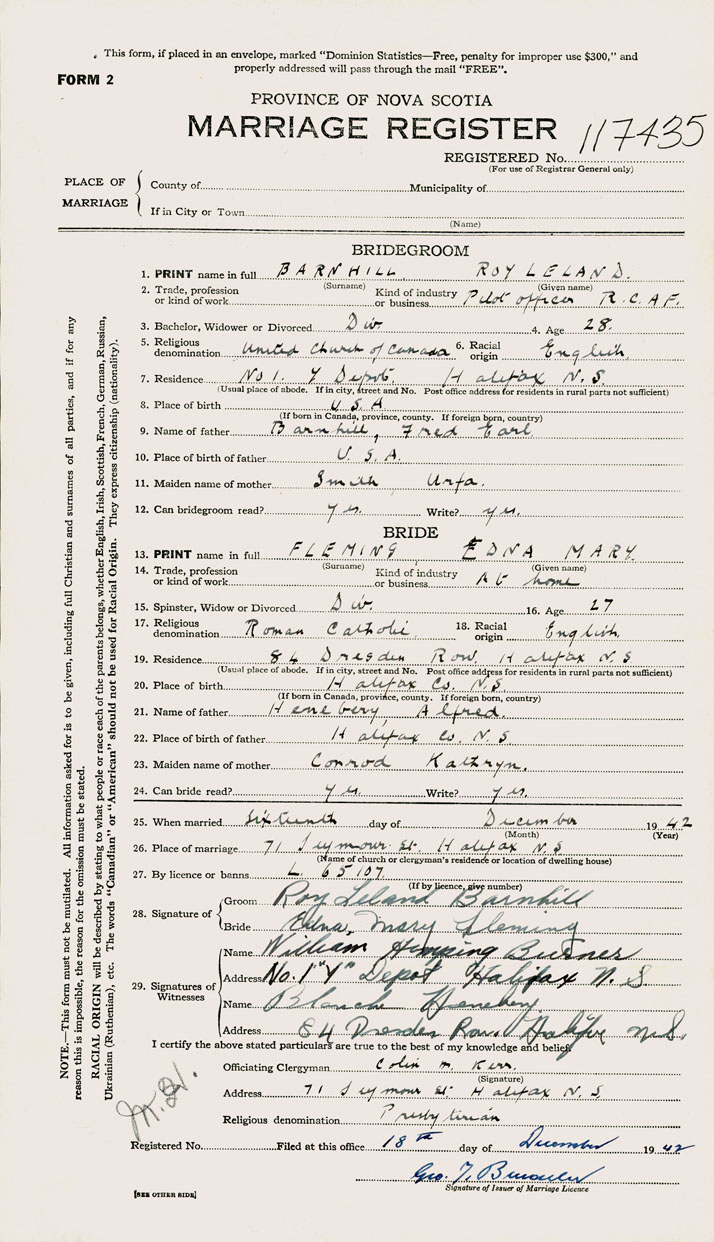 This form, if placed in an envelope, marked "Dominion Statistics—Free, penalty for improper use $300," and
properly addressed will pass through the mail "FREE".
FORM 2
PROVINCE OF NOVA SCOTIA
MARRIAGE REGISTER
117435
REGISTERED No.
(For use of Registrar General only)
PLACE OF MARRIAGE
County of Municipality of
If in City or Town
(Name)
BRIDEGROOM
1. PRINT name in full BARNHILL ROY LELAND.
(Surname) (Given name)
2. Trade, profession or kind of work Kind of industry or business Pilot officer R.C.A.F.
3. Bachelor, Widower or Divorced Div 4. Age 28.
5. Religious denomination United Church of Canada 6. Racial origin English
7. Residence No 1. Y Depot. Halifax N.S.
(Usual place of abode. If in city, street and No. Post office address for residents in rural parts not sufficient)
8. Place of birth U.S.A
(If born in Canada, province, county. If foreign born, country)
9. Name of father Barnhill, Fred Earl
10. Place of birth of father U.S.A.
11. Maiden name of mother Smith Urfa.
12. Can bridegroom read? yes. Write? yes.
BRIDE
13. PRINT name in full FLEMING EDNA MARY
(Surname) (Given name)
14. Trade, profession or kind of work Kind of industry or business At home
15. Spinster, Widow or Divorced Div. 16. Age 27
17. Religious denomination Roman Catholic 18. Racial origin English
19. Residence 84 Dresden Row. Halifax N.S
(Usual place of abode. If in city, street and No. Post office address for residents in rural parts not sufficient)
20. Place of birth Halifax Co. N.S
(If born in Canada, province, county. If foreign born, country)
21. Name of father Henebery, Alfred.
22. Place of birth of father Halifax Co. N.S
23. Maiden name of mother Conrod Kathryn.
24. Can bride read? yes. Write? yes.
25. When married sixteenth day of December 1942
(Month) (Year)
26. Place of marriage 71 Seymour St. Halifax N.S
(Name of church or clergyman's residence or location of dwelling house)
27. By licence or banns L. 65107
(If by licence, give number)
28. Signature of
Groom Roy Leland Barnhill
Bride Edna Mary Fleming
29. Signatures of Witnesses
Name William
Address No. 1 "Y" Depot Halifax N.S.
Name Blanche Henebery
Address 84 Dresden Row. Halifax N.S.
I certify the above stated particulars are true to the best of my knowledge and belief.
Officiating Clergyman Colin M. Kerr.
(Signature)
Address 71 Seymour St. Halifax N.S.
Religious denomination Presbyterian
Registered No. Filed at this office 18th day of December 1942
Geo. T.
Signature of Issuer of Marriage Licence
[SEE OTHER SIDE]
NOTE.—This form must not be mutilated. All information asked for is to be given, including full Christian and surnames of all parties, and if for any
reason this is impossible, the reason for the omission must be stated.
RACIAL ORIGIN will be described by stating to what people or race each of the parents belongs, whether English, Irish, Scottish, French, German, Russian,
Ukrainian (Ruthenian), etc. The words "Canadian" or "American" should not be used for Racial Origin. They express citizenship (nationality).